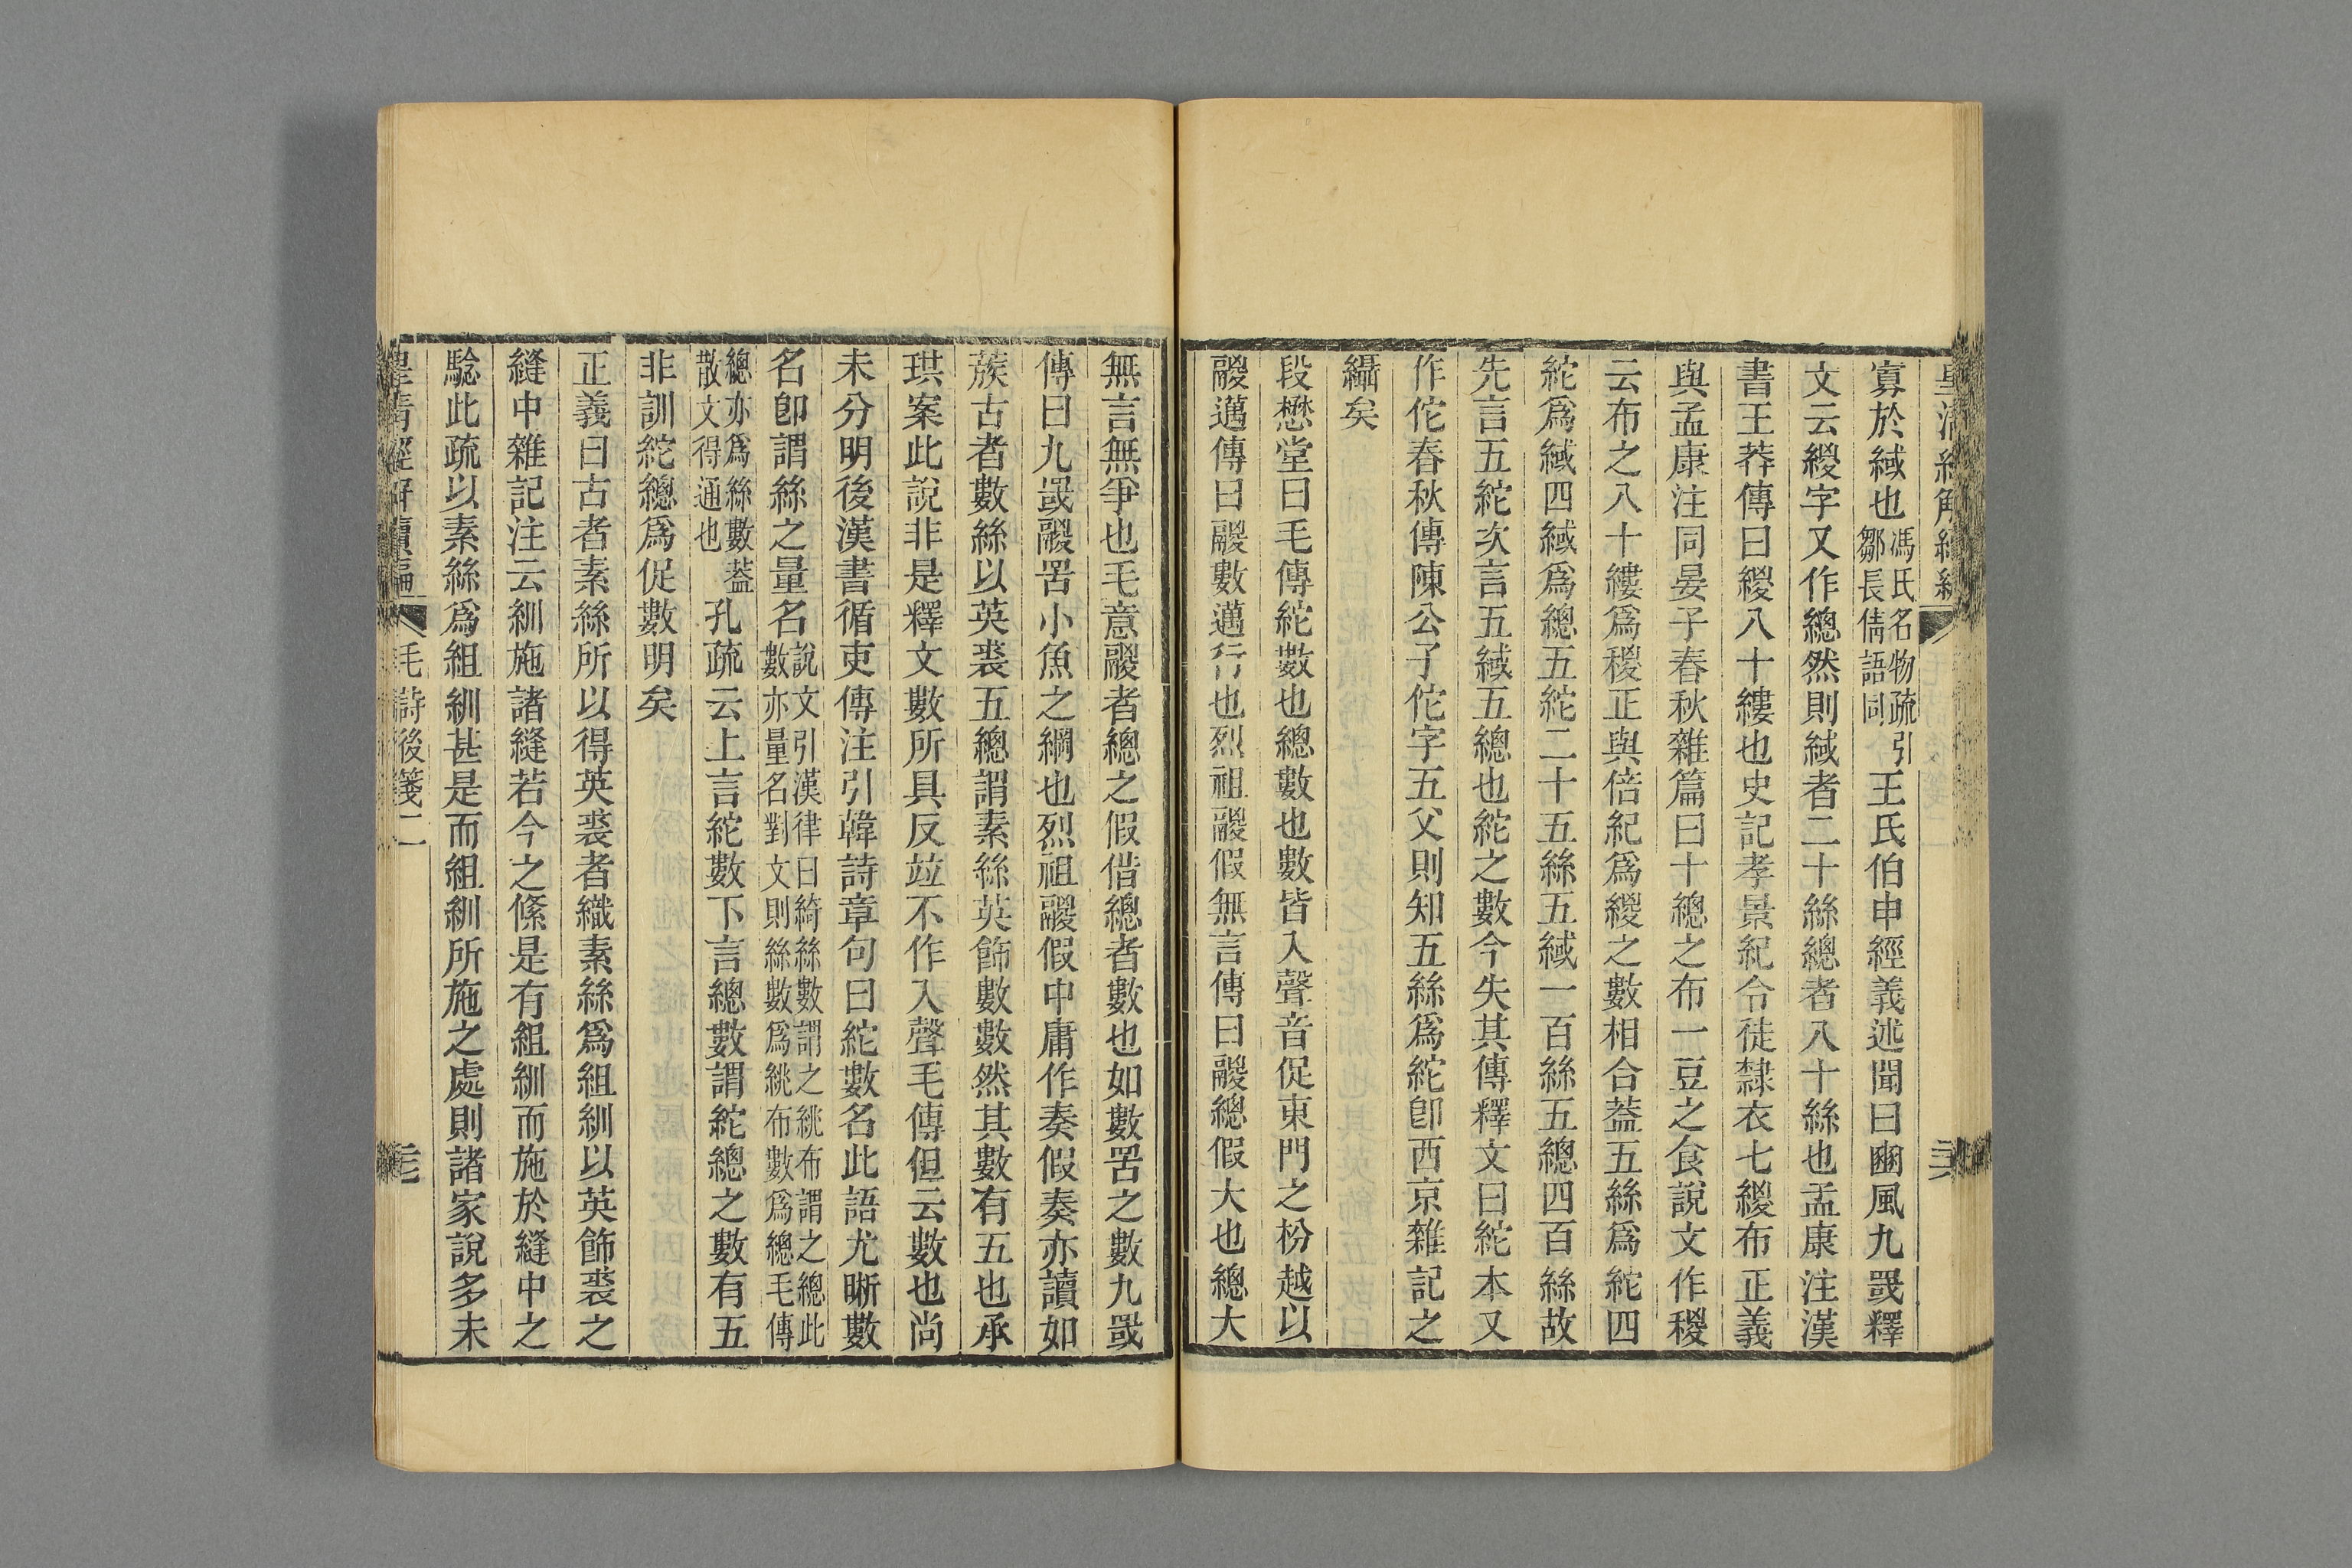 寡於緎也馮氏名物疏引鄒長倩語同王氏伯申經義述聞曰豳風九罭釋
文云緵字又作總然則緎者二十絲總者八十絲也孟康注漢
書王莽傳曰緵八十縷也史記孝景紀令徒隸衣七緵布正義
與孟康注同晏子春秋雜篇曰十總之布一豆之食說文作稯
云布之八十縷爲稯正與倍紀爲緵之數相合葢五絲爲紽四
紽爲緎四緎爲總五紽二十五絲五緎一百絲五總四百絲故
先言五紽次言五緎五總也紽之數今失其傳釋文曰紽本又
作佗春秋傳陳公子佗字五父則知五絲爲紽卽西京雜記之
䌰矣
段懋堂曰毛傳紽數也總數也數皆入聲音促東門之枌越以
鬷邁傳曰鬷數邁行也烈祖鬷假無言傳曰鬷總假大也總大
無言無爭也毛意鬷者總之假借總者數也如數罟之數九罭
傳曰九罭鬷罟小魚之網也烈祖鬷假中庸作奏假奏亦讀如
蔟古者數絲以英裘五總謂素絲英飾數數然其數有五也承
珙案此說非是釋文數所具反竝不作入聲毛傳但云數也尚
未分明後漢書循吏傳注引韓詩章句曰紽數名此語尤晰數
名卽謂絲之量名說文引漢律曰綺絲數謂之絩布謂之總此數亦量名對文則絲數爲絩布數爲總毛傳
總亦爲絲數葢散文得通也孔疏云上言紽數下言總數謂紽總之數有五
非訓紽總爲促數明矣
正義曰古者素絲所以得英裘者織素絲爲組紃以英飾裘之
縫中雜記注云紃施諸縫若今之絛是有組紃而施於縫中之
騐此疏以素絲爲組紃甚是而組紃所施之處則諸家說多未
皇清經解續編 毛詩後箋二